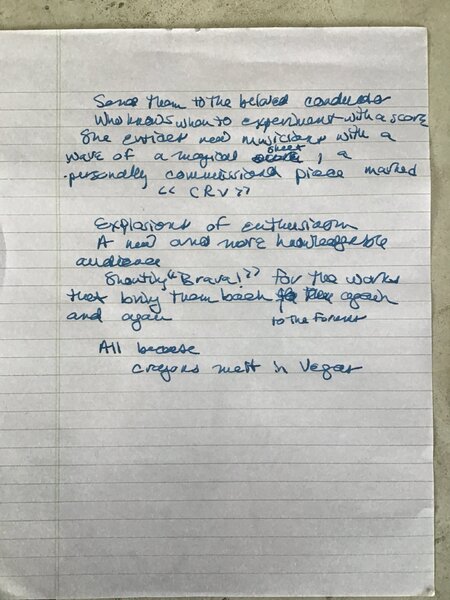 Send them to the beloved conductor
Who knows when to experiment with a score
She entices new musicians with a
wave of a magical sheet, a
personally commissioned piece marked
"CRV"
Explosions of enthusiasm
A new and more knowledgeable
audience
Shouting "Brava!" for the works
that bring them back again
and again to the Forum
All because
crayons melt in Vegas